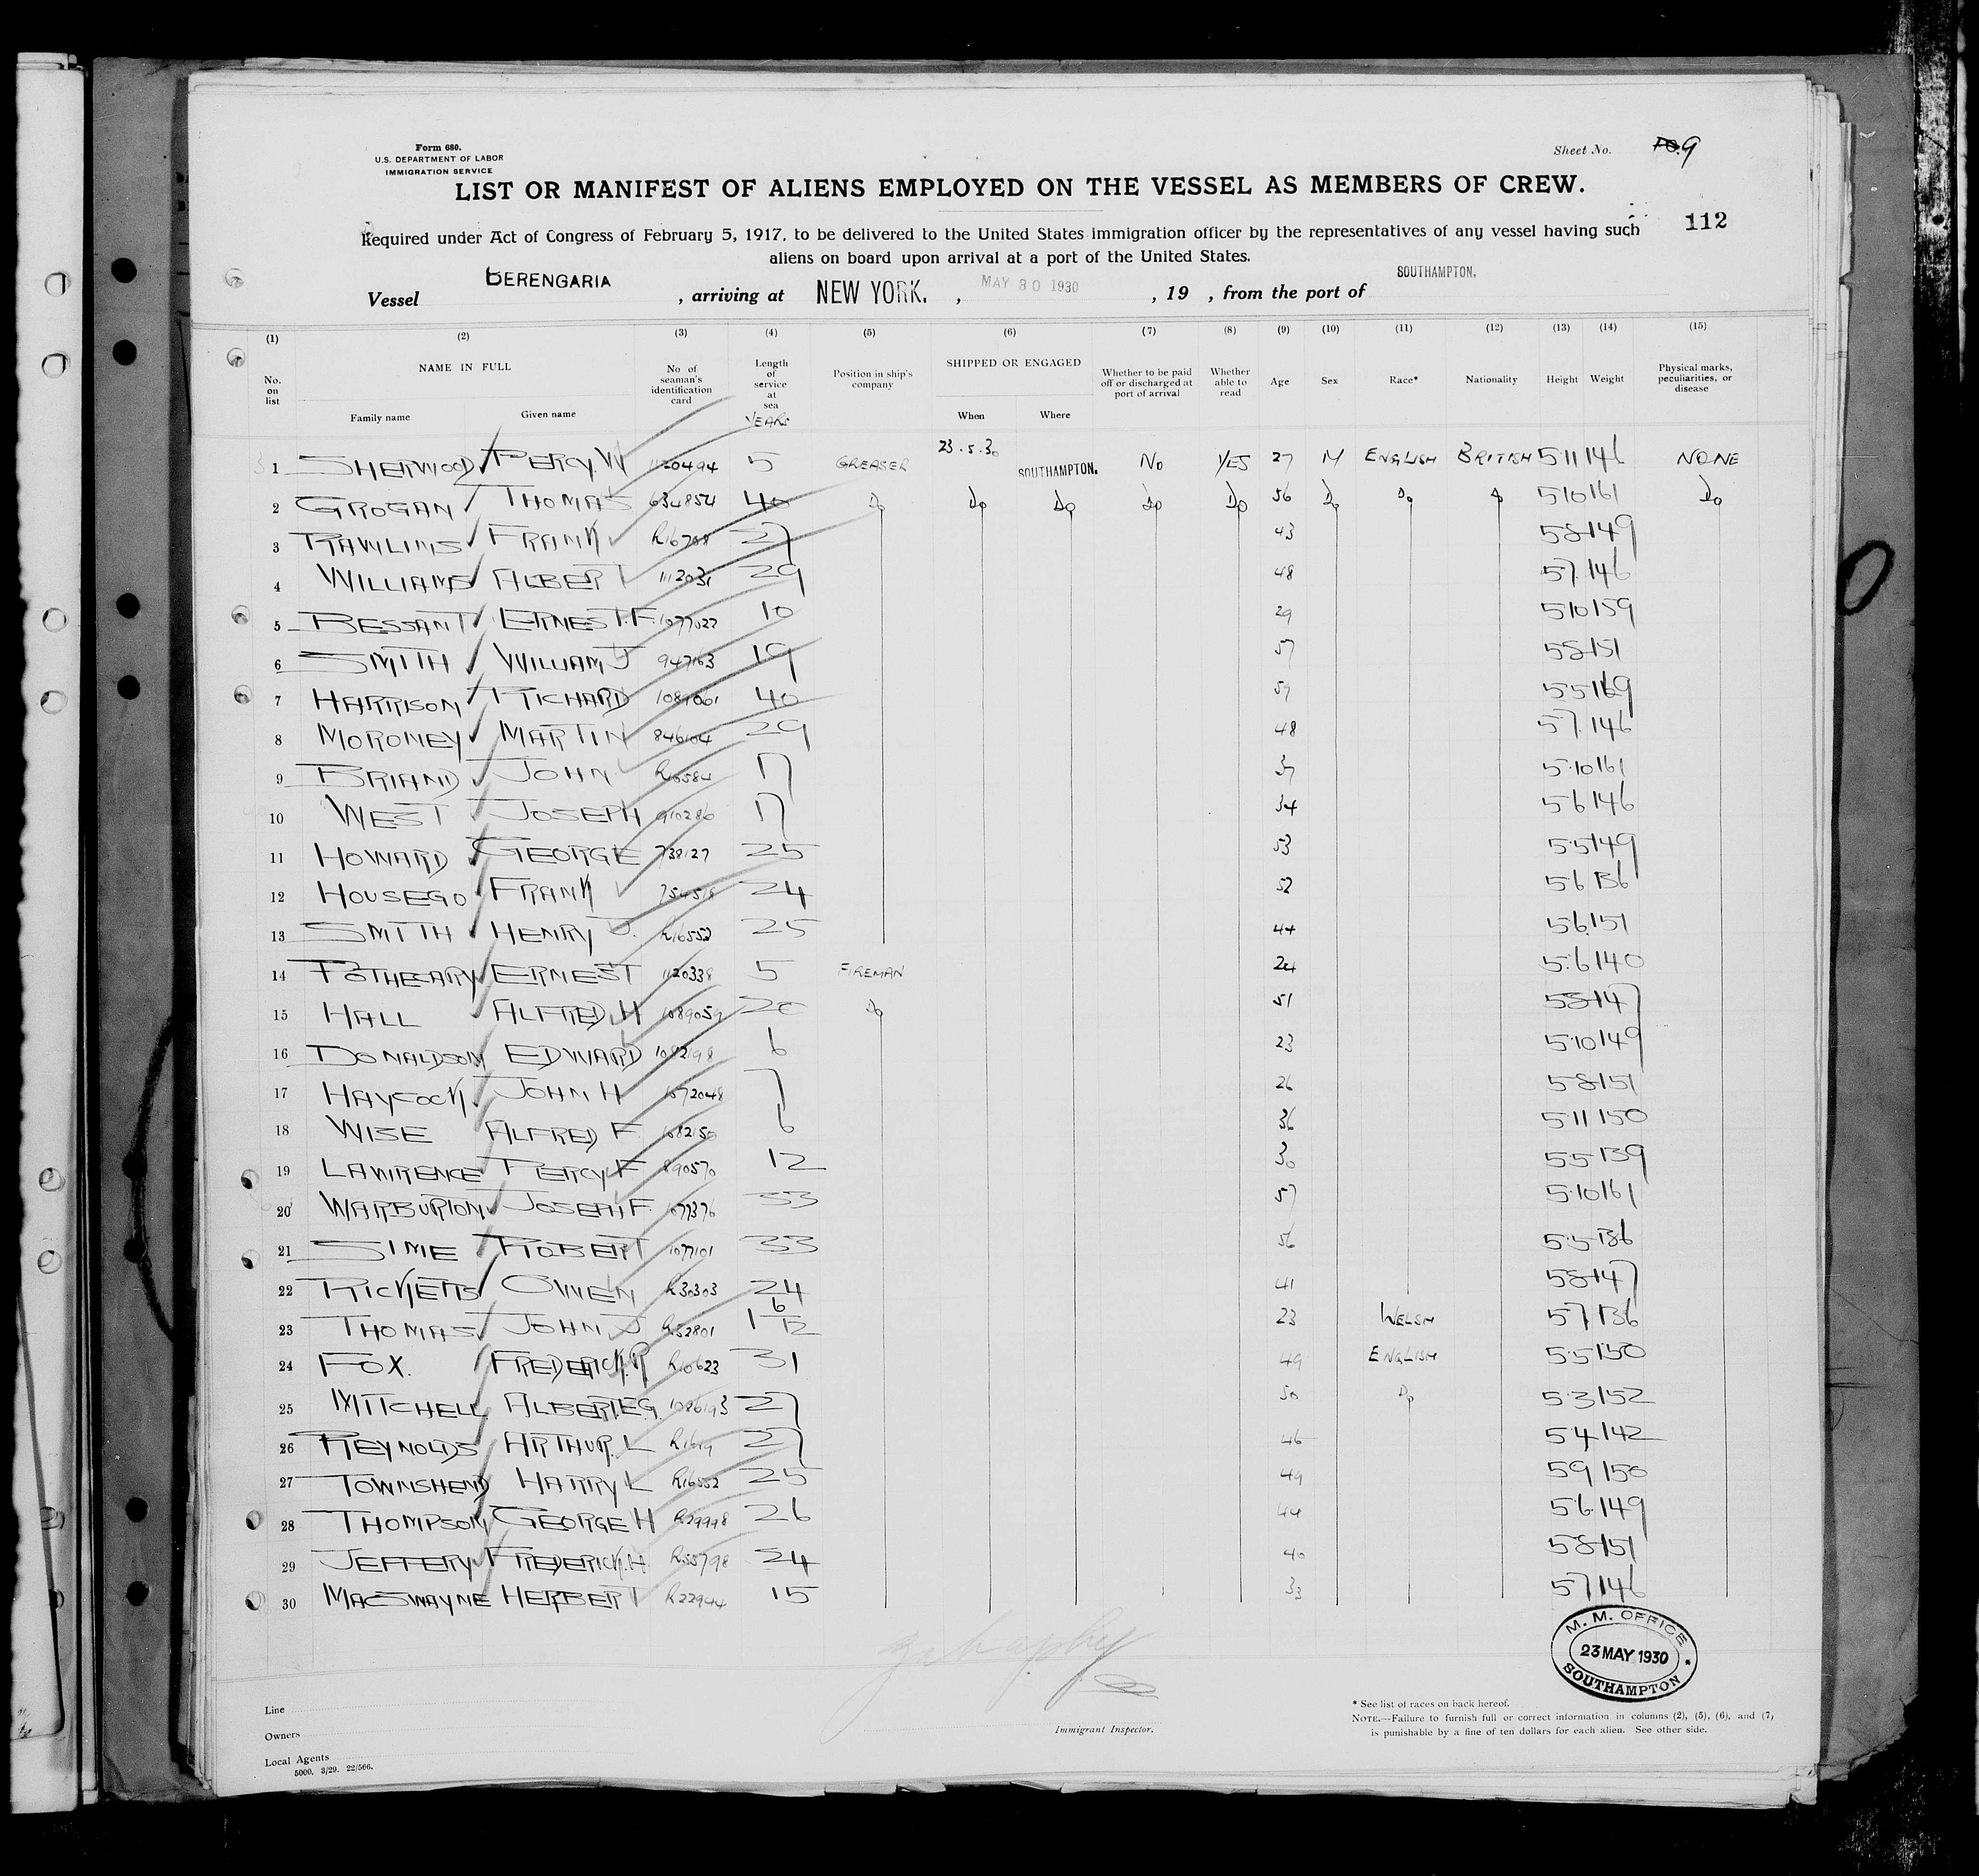 Form 680.
U.S. DEPARTMENT OF LABOR
IMMIGRATION SERVICE
Sheet No. 9
LIST OR MANIFEST OF ALIENS EMPLOYED ON THE VESSEL AS MEMBERS OF CREW.
112
Required under Act of Congress of February 5, 1917, to be delivered to the United States immigration officer by the representatives of any vessel having such
aliens on board upon arrival at a port of the United States.
Vessel BERENGARIA , arriving at NEW YORK. , MAY 30 1930 , 19 , from the port of SOUTHAMPTON.
(1) (2) (3) (4) (5) (6) (7) (8) (9) (10) (11) (12) (13) (14) (15)
No. on list NAME IN FULL Family name Given name No of seaman's identification card Length of service at sea YEARS Position in ship's company SHIPPED OR ENGAGED When Where Whether to be paid off or discharged at port of arrival Whether able to read Age Sex Race* Nationality Height Weight Physical marks, peculiarities, or disease
1 SHERWOOD PERCY.W 1120494 5 GREASER 23.5.30 SOUTHAMPTON. NO YES 27 M ENGLISH BRITISH 5.11 146 NONE
2 GROGAN THOMAS 634854 40 Do Do Do Do Do 56 Do Do Do 5.10 161 Do
3 RAWLINS FRANK 27 43 5.8 149
4 WILLIAMS ALBERT 1112031 29 48 5.7 146
5 BESSANT ERNEST.F. 1077027 10 29 5.10 159
6 SMITH WILLIAM J 947163 19 57 5.8 151
7 HARRISON RICHARD 1089061 40 59 5.5 169
8 MORONEY MARTIN 846104 29 48 5.7. 146
9 BRIAND JOHN 17 37 5.10 161
10 WEST JOSEPH 910286 17 34 5.6 146
11 HOWARD GEORGE 738127 25 53 5.5 149
12 HOUSEGO FRANK 754518 24 52 5.6 136
13 SMITH HENRY J. R16552 25 44 5.6. 151
14 POTHECARY ERNEST 1120338 5 FIREMAN 24 5.6 140
15 HALL ALFRED.H 1089059 20 Do 51 5.8 147
16 DONALDSON EDWARD 1082198 6 23 5.10 149
17 HAYCOCK. JOHN H 1072048 7 26 5.8 151
18 WISE ALFRED F. 1082150 6 36 5.11 150
19 LAWRENCE PERCY F 890570 12 30 5.5 139
20 WARBURTON JOSEPH F. 1077376 33 57 5.10 161
21 SIME ROBERT 1077101 33 56 5.5 136
22 RICKETTS OWEN R30303 24 41 5.8 147
23 THOMAS JOHN J R52801 1 6/12 23 WELSH 5.7 136
24 FOX. FREDERICK.R R10623 31 49 ENGLISH 5.5 150
25 MITCHELL ALBERT.E.G. 1086193 27 50 Do 5.3 152
26 REYNOLDS ARTHUR. L 27 46 5.4 142
27 TOWNSHEND HARRY L R16552 25 49 5.9 150
28 THOMPSON GEORGE H R29998 26 44 5.6. 149
29 JEFFERY FREDERICK.H R55798 24 40 5.8 151
30 MACSWAYNE HERBERT R22944 15 33 5.7 146
M. M. OFFICE
23 MAY 1930
SOUTHAMPTON
Line
Owners
Local Agents
5000. 3/29. 22/566.
Immigrant Inspector.
* See list of races on back hereof.
NOTE.—Failure to furnish full or correct information in columns (2), (5), (6), and (7)
is punishable by a fine of ten dollars for each alien. See other side.